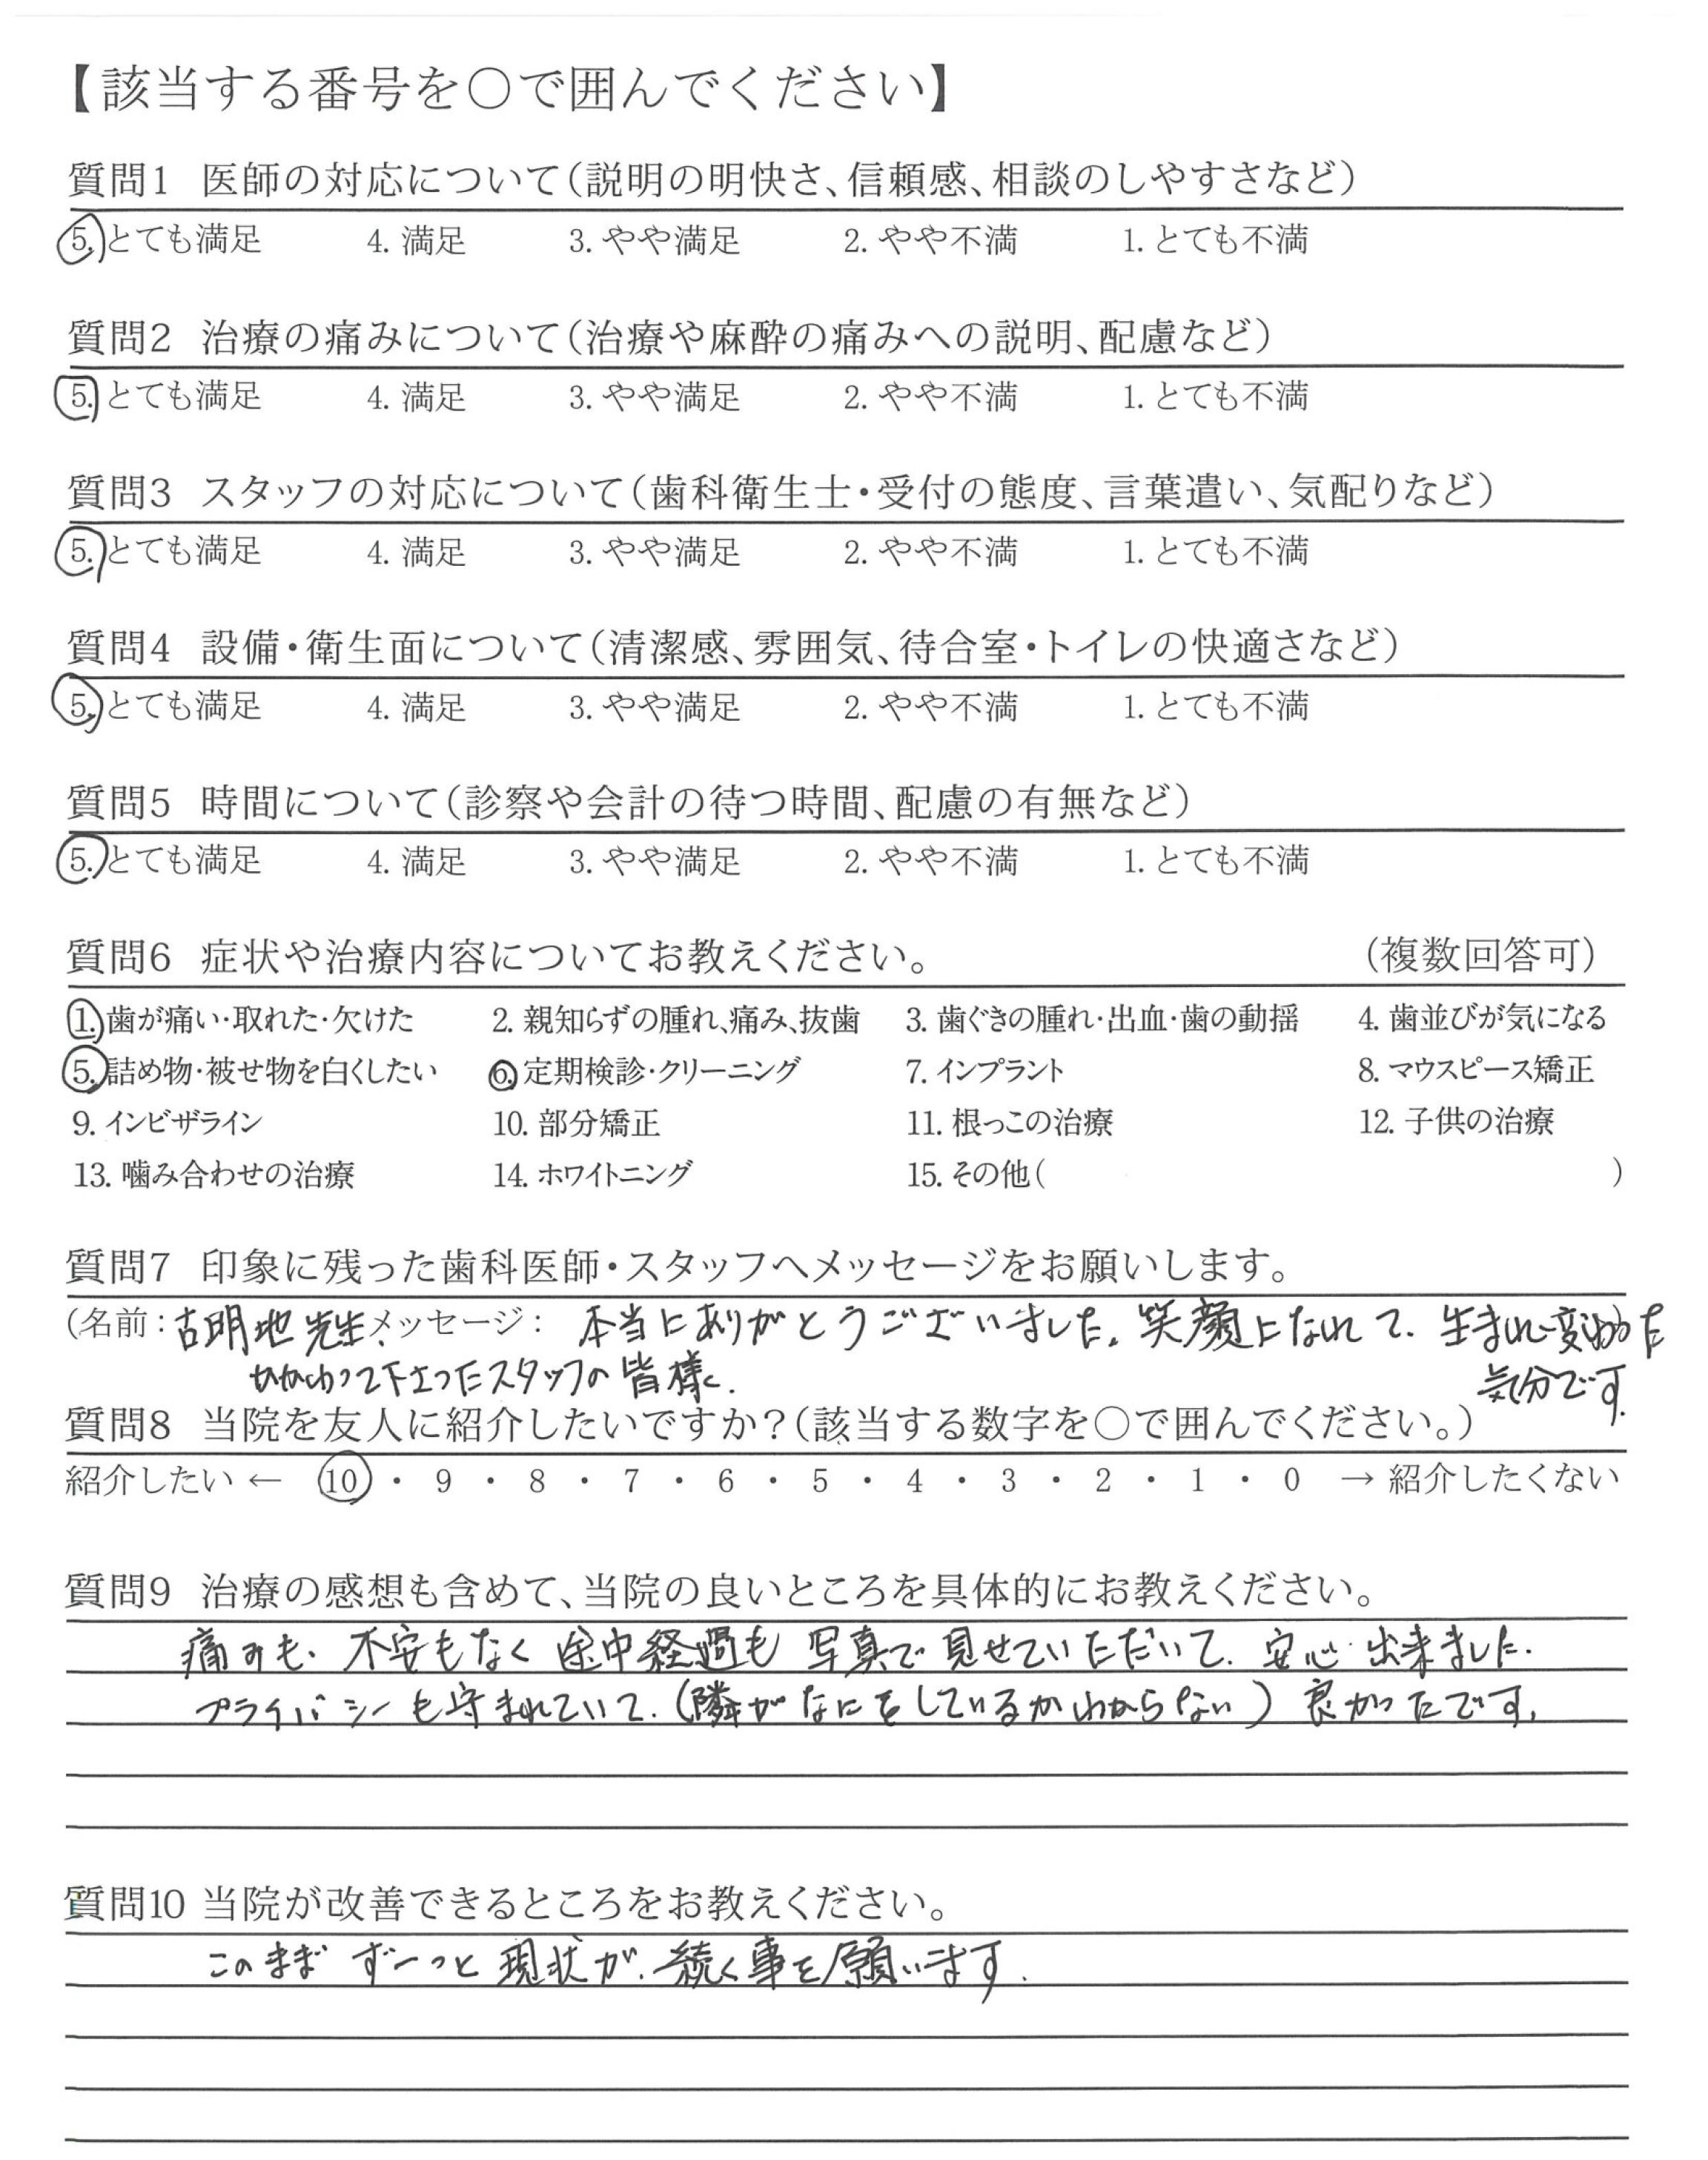 【該当する番号を○で囲んでください】
質問1 医師の対応について（説明の明快さ、信頼感、相談のしやすさなど）
5. とても満足 4. 満足 3. やや満足 2. やや不満 1. とても不満
質問2 治療の痛みについて（治療や麻酔の痛みへの説明、配慮など）
5. とても満足 4. 満足 3. やや満足 2. やや不満 1. とても不満
質問3 スタッフの対応について（歯科衛生士・受付の態度、言葉遣い、気配りなど）
5. とても満足 4. 満足 3. やや満足 2. やや不満 1. とても不満
質問4 設備・衛生面について（清潔感、雰囲気、待合室・トイレの快適さなど）
5. とても満足 4. 満足 3. やや満足 2. やや不満 1. とても不満
質問5 時間について（診察や会計の待つ時間、配慮の有無など）
5. とても満足 4. 満足 3. やや満足 2. やや不満 1. とても不満
質問6 症状や治療内容についてお教えください。 （複数回答可）
1. 歯が痛い・取れた・欠けた 2. 親知らずの腫れ、痛み、抜歯 3. 歯ぐきの腫れ・出血・歯の動揺 4. 歯並びが気になる
5. 詰め物・被せ物を白くしたい 6. 定期検診・クリーニング 7. インプラント 8. マウスピース矯正
9. インビザライン 10. 部分矯正 11. 根っこの治療 12. 子供の治療
13. 噛み合わせの治療 14. ホワイトニング 15. その他（ ）
質問7 印象に残った歯科医師・スタッフへメッセージをお願いします。
（名前：古明地先生、メッセージ： 本当にありがとうございました。笑顔になれて、生まれ変わった
かかわって下さったスタッフの皆様。 気分です。
質問8 当院を友人に紹介したいですか？（該当する数字を○で囲んでください。）
紹介したい ← 10 ・ 9 ・ 8 ・ 7 ・ 6 ・ 5 ・ 4 ・ 3 ・ 2 ・ 1 ・ 0 → 紹介したくない
質問9 治療の感想も含めて、当院の良いところを具体的にお教えください。
痛みも、不安もなく途中経過も写真で見せていただいて、安心出来ました。
プライバシーも守まれていて、（隣がなにをしているかわからない）良かったです。
質問10 当院が改善できるところをお教えください。
このままずーっと現状が、続く事を願います。